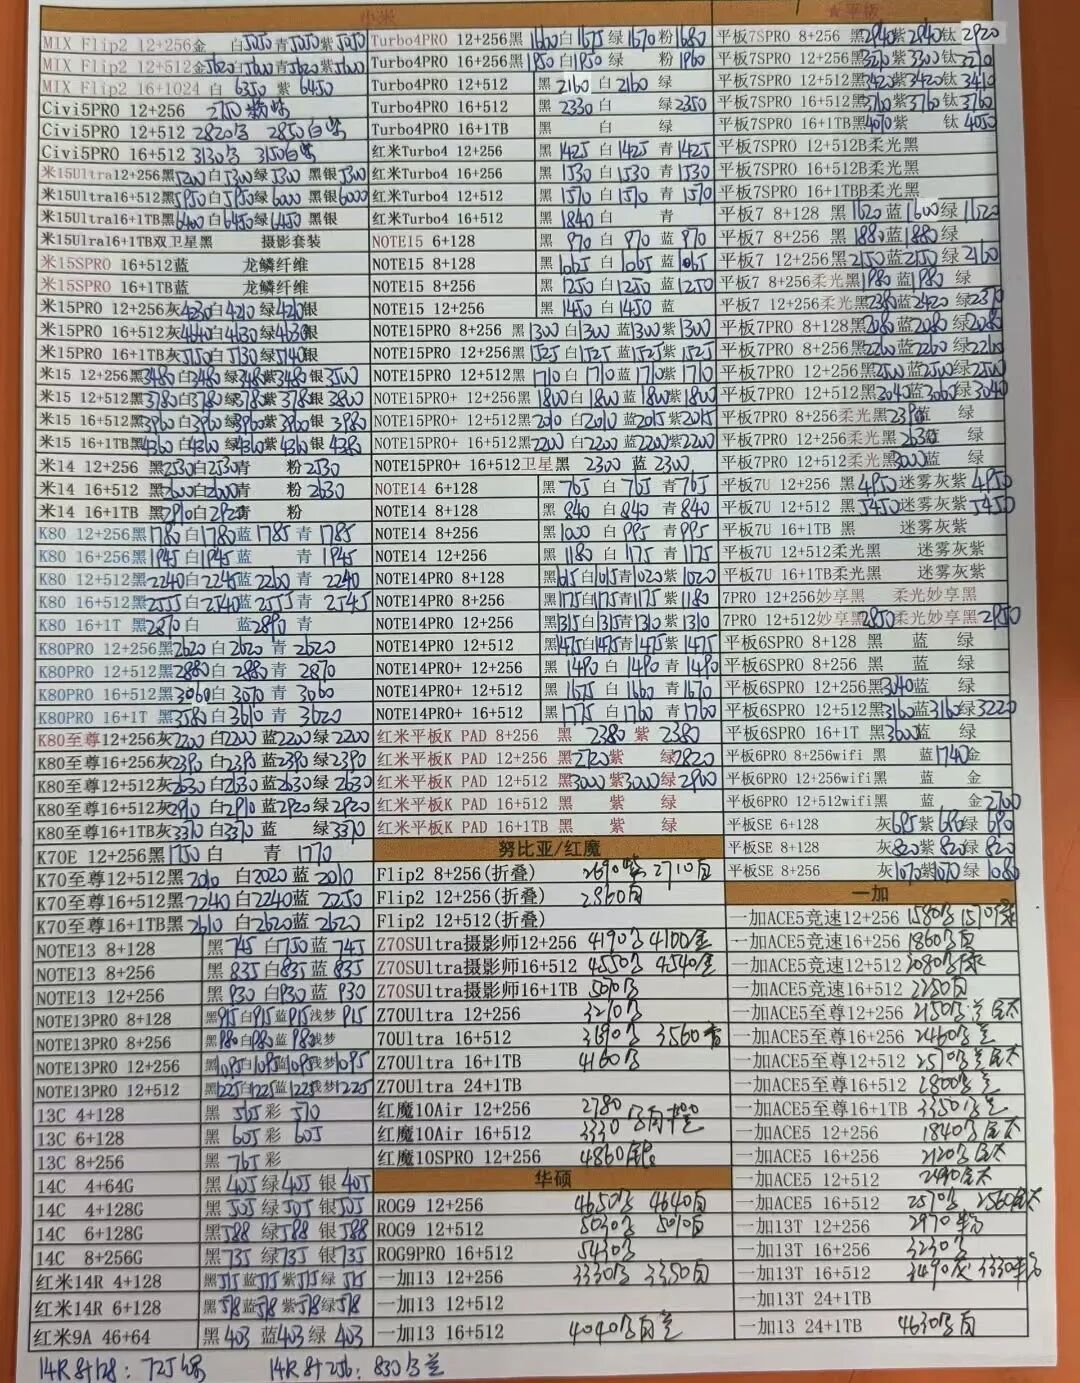 小米
MIX Flip2 12+256金 白5050青5050紫5050
MIX Flip2 12+512金5620白5600青5620紫5600
MIX Flip2 16+1024 白 6350 紫 6450
Civi5PRO 12+256 2750
Civi5PRO 12+512 2820 2850白紫
Civi5PRO 16+512 3130 3150白紫
米15Ultra12+256黑5200白5300绿5300 黑银5300
米15Ultra16+512黑5950白5950绿6000 黑银6000
米15Ultra16+1TB黑6400白6450绿6450 黑银
米15Ulra16+1TB双卫星黑 摄影套装
米15SPRO 16+512蓝 龙鳞纤维
米15SPRO 16+1TB蓝 龙鳞纤维
米15PRO 12+256灰4230白4210绿4210银
米15PRO 16+512灰4440白4430绿4430银
米15PRO 16+1TB灰5150白5130绿5140银
米15 12+256黑3480白3480绿3480紫3480 银3500
米15 12+512黑3780白3780绿3780紫3780 银3800
米15 16+512黑3960白3960绿3960紫3960 银3980
米15 16+1TB黑4360白4360绿4360紫4360 银4380
米14 12+256 黑2530白2530青 粉2530
米14 16+512 黑2600白2600青 粉2630
米14 16+1TB 黑2910白2920青 粉
K80 12+256黑1780白1780蓝1785 青 1785
K80 16+256黑1945白1945蓝 青 1945
K80 12+512黑2240白2245蓝2260 青 2240
K80 16+512黑2555白2540蓝2555青 2545
K80 16+1T 黑2870白 蓝2890 青
K80PRO 12+256黑2620白2620 青 2620
K80PRO 12+512黑2880白2880 青 2870
K80PRO 16+512黑3060白3070 青 3060
K80PRO 16+1T 黑3580白3610 青 3620
K80至尊12+256灰2200 白2200 蓝2200绿2200
K80至尊16+256灰2390 白2390 蓝2390绿2390
K80至尊12+512灰2630 白2630 蓝2630绿2630
K80至尊16+512灰2910 白2910 蓝2920绿2920
K80至尊16+1TB灰3370白3370 蓝 绿3370
K70E 12+256黑1750 白 青 1770
K70至尊12+512黑2010 白2020 蓝 2010
K70至尊16+512黑2240 白2240 蓝 2250
K70至尊16+1TB黑2610 白2620蓝 2620
NOTE13 8+128 黑 745 白750蓝 745
NOTE13 8+256 黑 835白835蓝 835
NOTE13 12+256 黑 930 白930蓝 930
NOTE13PRO 8+128 黑915白915蓝915浅梦 915
NOTE13PRO 8+256 黑980白980蓝 980浅梦
NOTE13PRO 12+256 黑1095白1095蓝1095浅梦1095
NOTE13PRO 12+512 黑1225白1225蓝1225浅梦1225
13C 4+128 黑 565 彩 570
13C 6+128 黑 605 彩 605
13C 8+256 黑 765 彩
14C 4+64G 黑 405 绿405 银 405
14C 4+128G 黑505 绿505 银505
14C 6+128G 黑588 绿588 银 588
14C 8+256G 黑735 绿735 银735
红米14R 4+128 黑515蓝515紫515绿 515
红米14R 6+128 黑578蓝578紫578绿578
红米9A 46+64 黑 403 蓝403 绿 403
14R 8+128: 725绿 14R 8+256: 830
Turbo4PRO 12+256黑 1600白1675 绿 1670 粉1680
Turbo4PRO 16+256黑1950白1950绿 1950 粉 1960
Turbo4PRO 12+512 黑 2160 白 2160 绿
Turbo4PRO 16+512 黑 2330 白 绿 2350
Turbo4PRO 16+1TB 黑 白 绿
红米Turbo4 12+256 黑 1425 白 1425 青 1425
红米Turbo4 16+256 黑 1530 白 1530 青 1530
红米Turbo4 12+512 黑 1570 白 1570 青 1570
红米Turbo4 16+512 黑 1840白 青
NOTE15 6+128 黑 970 白 970 蓝 970
NOTE15 8+128 黑 1065 白 1065 蓝 1065
NOTE15 8+256 黑 1250 白 1250 蓝 1250
NOTE15 12+256 黑 1450 白 1450 蓝
NOTE15PRO 8+256 黑1300 白1300 蓝1300紫1300
NOTE15PRO 12+256黑1525白1525 蓝1525紫1525
NOTE15PRO 12+512黑1710 白 1710 蓝1710紫1710
NOTE15PRO+ 12+256黑1800白1800 蓝1800紫1800
NOTE15PRO+ 12+512黑2010 白2010 蓝2015紫2015
NOTE15PRO+ 16+512黑2200 白2200 蓝2200紫2200
NOTE15PRO+ 16+512卫星黑 2300 蓝 2300
NOTE14 6+128 黑 765 白 765 青765
NOTE14 8+128 黑 840 白 840 青 840
NOTE14 8+256 黑1000 白995 青 995
NOTE14 12+256 黑 1180 白 1175 青 1175
NOTE14PRO 8+128 黑1015白1015青1020紫1020
NOTE14PRO 8+256 黑1175白1175青1175 紫1180
NOTE14PRO 12+256 黑1315白1315青1310 紫1310
NOTE14PRO 12+512 黑1475白1475青1475紫1475
NOTE14PRO+ 12+256 黑 1490 白 1490 青 1490
NOTE14PRO+ 12+512 黑 1675 白 1660 青1670
NOTE14PRO+ 16+512 黑 1775 白 1760 青 1760
红米平板K PAD 8+256 黑 2380紫 2380
红米平板K PAD 12+256 黑2720紫 绿2820
红米平板K PAD 12+512 黑3000紫3000绿2900
红米平板K PAD 16+512 黑 紫 绿
红米平板K PAD 16+1TB 黑 紫 绿
努比亚/红魔
Flip2 8+256(折叠) 2690紫 2710白
Flip2 12+256(折叠) 2860白
Flip2 12+512(折叠)
Z70SUltra摄影师12+256 4190 4100金
Z70SUltra摄影师16+512 4550 4540金
Z70SUltra摄影师16+1TB 5090
Z70Ultra 12+256 3210
70Ultra 16+512 3690 3560
Z70Ultra 16+1TB 4160
Z70Ultra 24+1TB
红魔10Air 12+256 2780
红魔10Air 16+512 3330
红魔10SPRO 12+256 4860银
华硕
ROG9 12+256 4650 4640白
ROG9 12+512 5030 5010白
ROG9PRO 16+512 5430
一加13 12+256 3330 3350白
一加13 12+512
一加13 16+512 4040
★平板
平板7SPRO 8+256 黑2940紫2940钛2920
平板7SPRO 12+256黑3210紫3300钛3210
平板7SPRO 12+512黑3420紫3420钛3410
平板7SPRO 16+512黑3760紫3760 钛3760
平板7SPRO 16+1TB黑4070紫 钛 4050
平板7SPRO 12+512B柔光黑
平板7SPRO 16+512B柔光黑
平板7SPRO 16+1TBB柔光黑
平板7 8+128 黑1620蓝1600绿1620
平板7 8+256 黑1880蓝1880绿
平板7 12+256黑2150蓝2150 绿2160
平板7 8+256柔光黑1980 蓝1980 绿
平板7 12+256柔光黑2380蓝2420 绿2370
平板7PRO 8+128黑2080蓝2080绿2080
平板7PRO 8+256黑2260蓝2260 绿2260
平板7PRO 12+256黑2500蓝2500绿2500
平板7PRO 12+512黑3040蓝3060绿3040
平板7PRO 8+256柔光黑2390蓝 绿
平板7PRO 12+256柔光黑2630蓝 绿
平板7PRO 12+512柔光黑3000蓝 绿
平板7U 12+256 黑4950迷雾灰紫4950
平板7U 12+512 黑5450迷雾灰紫5450
平板7U 16+1TB 黑 迷雾灰紫
平板7U 12+512柔光黑 迷雾灰紫
平板7U 16+1TB柔光黑 迷雾灰紫
7PRO 12+256妙享黑 柔光妙享黑
7PRO 12+512妙享黑2850柔光妙享黑2950
平板6SPRO 8+128 黑 蓝 绿
平板6SPRO 8+256 黑 蓝 绿
平板6SPRO 12+256黑3040蓝 绿
平板6SPRO 12+512黑3160蓝3160绿3220
平板6SPRO 16+1T 黑3600蓝 绿
平板6PRO 8+256wifi 黑 蓝1740金
平板6PRO 12+256wifi黑 蓝 金
平板6PRO 12+512wifi黑 蓝 金2700
平板SE 6+128 灰685紫680绿 680
平板SE 8+128 灰820紫 820绿 820
平板SE 8+256 灰1070紫1070绿 1080
一加
一加ACE5竞速12+256 1580 1570绿
一加ACE5竞速16+256 1860
一加ACE5竞速12+512 2080
一加ACE5竞速16+512 2250
一加ACE5至尊12+256 2150
一加ACE5至尊16+256 2460
一加ACE5至尊12+512 2570
一加ACE5至尊16+512 2800
一加ACE5至尊16+1TB 3350
一加ACE5 12+256 1840
一加ACE5 16+256 2120
一加ACE5 12+512 2490
一加ACE5 16+512 2570 2560
一加13T 12+256 2970
一加13T 16+256 3230
一加13T 16+512 3490灰 3330
一加13T 24+1TB
一加13 24+1TB 4630